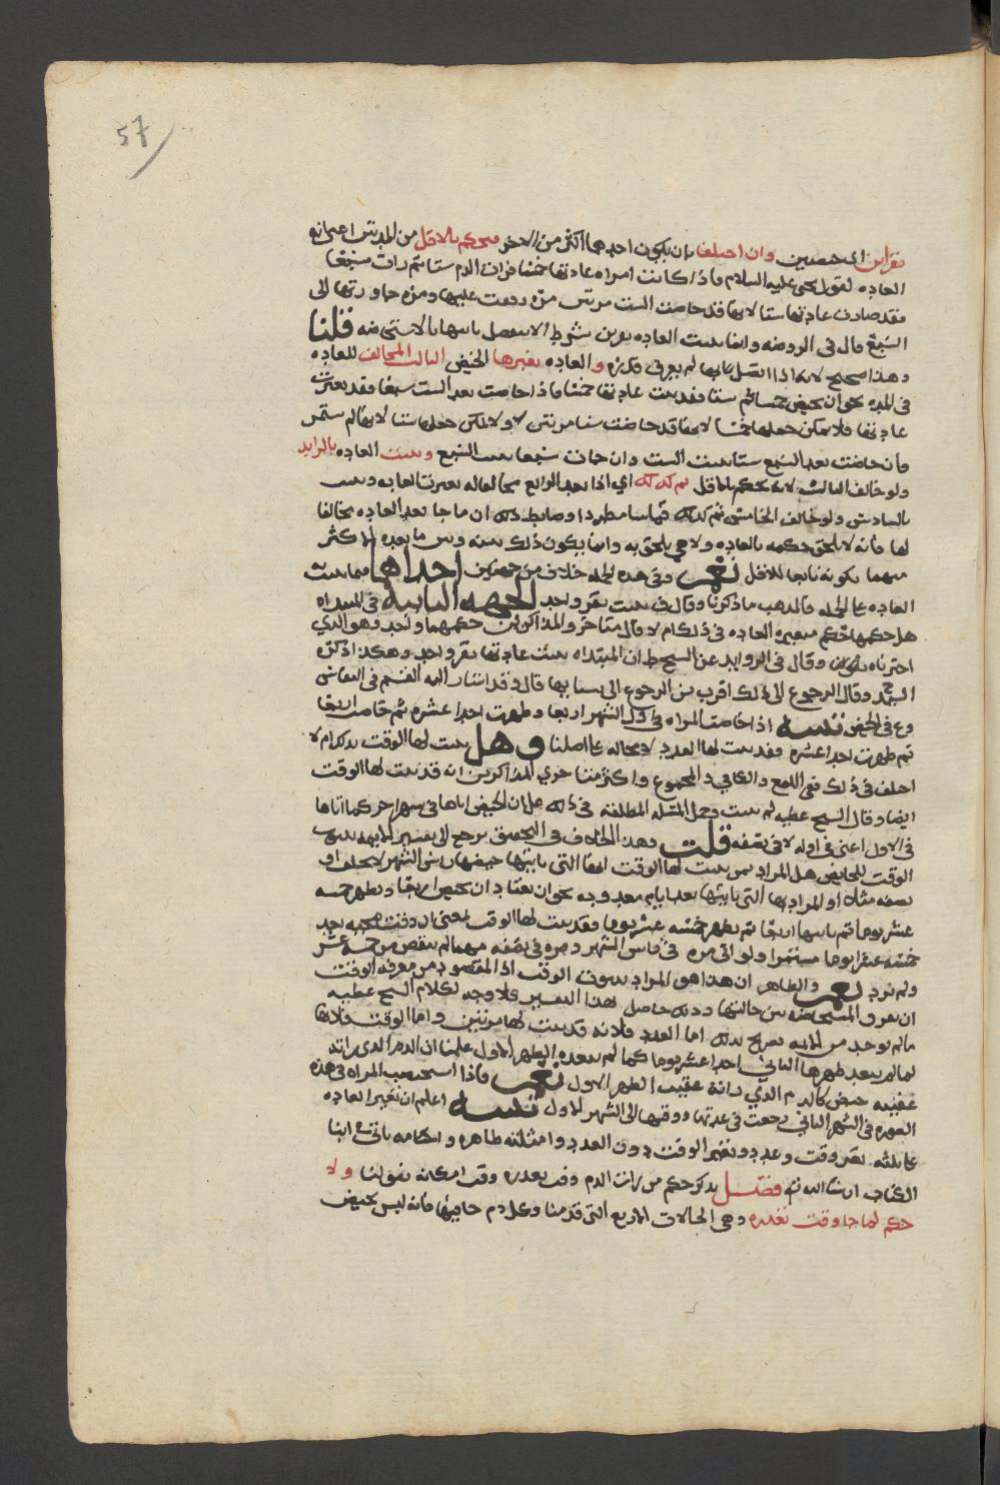 57
بقراين اي حيضتين وان اختلفا بان يكون احدهما اكثر من الاخر فيحكم بالاقل من المدتين اعني انه
العاده لقول يحيى عليه السلام فاذا كانت امراه عادتها خمسا فرات الدم ستا ثم رات سبعا
فقد صارت عادتها ستا لانها قد حاضت الست مرتين مره وقفت عليها ومره جاوزتها الى
السبع قال في الروضه وانما تثبت العاده بقرين بشرط الا يتصل ثانيها بالاستحاضه قلنا
وهذا صحيح لانه اذا اتصل ثانيها لم يعرف قدره والعاده يغيرها الحيض الثالث المخالف للعاده
في المده نحو ان تحيض خمسا ثم ستا فقد ثبتت عادتها خمسا فاذا حاضت بعد الست سبعا فقد تغيرت
عادتها فلا يمكن جعلها خمسا لانها قد حاضت ستا مرتين ولا يمكن جعلها ستا لانها لم تستمر
فان حاضت بعد السبع ستا ثبتت الست وان حاضت سبعا ثبت السبع وتثبت العاده بالرابع
ولو خالف الثالث لانه يحكم بالاقل ثم كذلك اي اذا جا الرابع مخالفا له تغيرت العاده وتثبت
بالسادس ولو خالف الخامس ثم كذلك قياسا مطردا وضابط ذلك ان ما جا بعد العاده مخالفا
لها فانه لا يلحق حكمه بالعاده ولا هي يلحق به وانما يكون ذلك بينه وبين ما بعده الاكثر
منهما يكونه تابعا للاقل نعم وفي هذه الجمله خلاف من جهتين احداهما فيما تثبت
العاده على الجمله فالمذهب ما ذكرنا وقال ف تثبت بقرو واحد الجهه الثانيه في المبتداه
هل حكمها حكم متغيره العاده في ذلك ام لا قال متاخروا المذاكرين حكمهما واحد وهو الذي
اخترناه وقال في الزوايد عن الشيخ ط ان المبتداه تثبت عادتها بقرو واحد وهكذا ذكره
قال الرجوع الى ذلك اقرب من الرجوع الى نسايها قال وقد اشار اليه القسم في النفاس
وع في الحيض تنبيه اذا حاضت المراه في اول الشهر اربعا وطهرت احد عشره ثم حاضت اربعا
ثم طهرت احد عشره فقد ثبت لها العدد لا محاله على اصلنا وهل يثبت لها الوقت بذلك ام لا
اختلف في ذلك ففي اللمع والكافي والمجموع واكثر متاخري المذاكرين انه قد ثبت لها الوقت
ايضا وقال الشيخ عطيه لم يثبت وحمل المسله المطلقه في ذلك على ان الحيض اتاها في شهر اخر كما اتاها
في الاول اعني في اوله لا في نصفه قلت وهذا الخلاف في التحقيق يرجع الى تفسير الايمه لثبوت
الوقت للحايض هل المراد بمن يثبت لها الوقت انها التي ياتيها حيضها راس الشهر لا يختلف او
نصفه مثلا او المراد بها التي ياتيها بعد ايام معدوده نحو ان تعتاد ان تحيض اربعا وتطهر خمسه
عشر يوما ثم ياتيها اربعا ثم تطهر خمسه عشر يوما فقد ثبت لها الوقت بمعنى ان وقت مجيه بعد
خمسه عشر يوما مستمرا ولو اتى مره في راس الشهر ومره في نصفه مهما لم ينقص من خمسه عشر
ولم يزد نعم والظاهر ان هذا هو المراد بثبوت الوقت اذ المقصود من معرفه الوقت
ان تعرف المستحاضه من حالتها وذلك حاصل بهذا التفسير فلا وجه لكلام الشيخ عطيه
ما لم يوجد من الايمه تصريح بذلك اما العدد فلانه قد ثبت لها مرتين واما الوقت فلانها
لما لم يتعد طهرها الثاني احد عشر يوما كما لم يتعده الطهر الاول علمنا ان الدم الذي راته
عقيبه حيض كالدم الذي راته عقيب الطهر الاول نعم فاذا استحيضت المراه في هذه
الصوره في الشهر الثاني رجعت في عددها ووقتها الى الشهر الاول تنبيه اعلم ان تغير العاده
على ثلثه تغير وقت وعدد وتغير الوقت دون العدد وامثلته ظاهره واحكامه ياتي في اثنا
الكتاب ان شا الله تع فصل يذكر حكم من رات الدم وقت تعذره وقت امكانه بقولنا ولا
حكم لما جا وقت تعذره وهي الحالات الاربع التي قدمنا وكل دم جا فيها فانه ليس بحيض